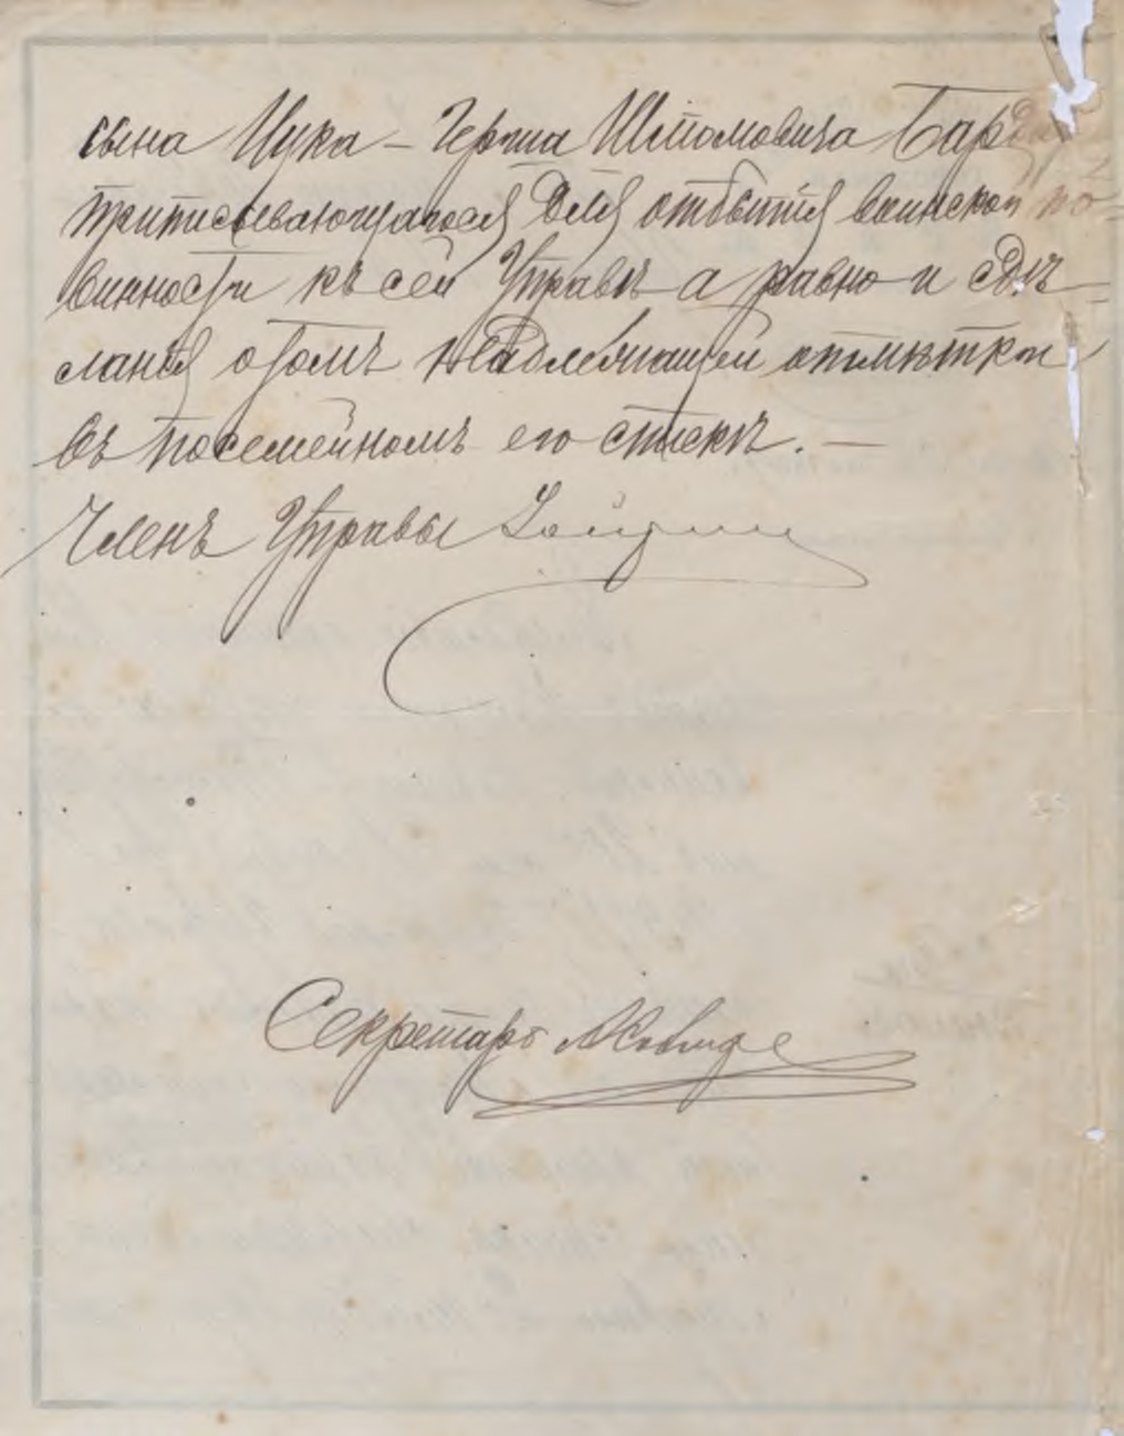 сына Ицка - Герша Шліомовича Бар
приписывающагося для отбытія воинской по-
винности къ сей Управѣ а равно и сдѣ-
ланія о томъ надлежащей отмѣтки
въ посемейномъ его спискѣ. —
Членъ Управы
Секретарь